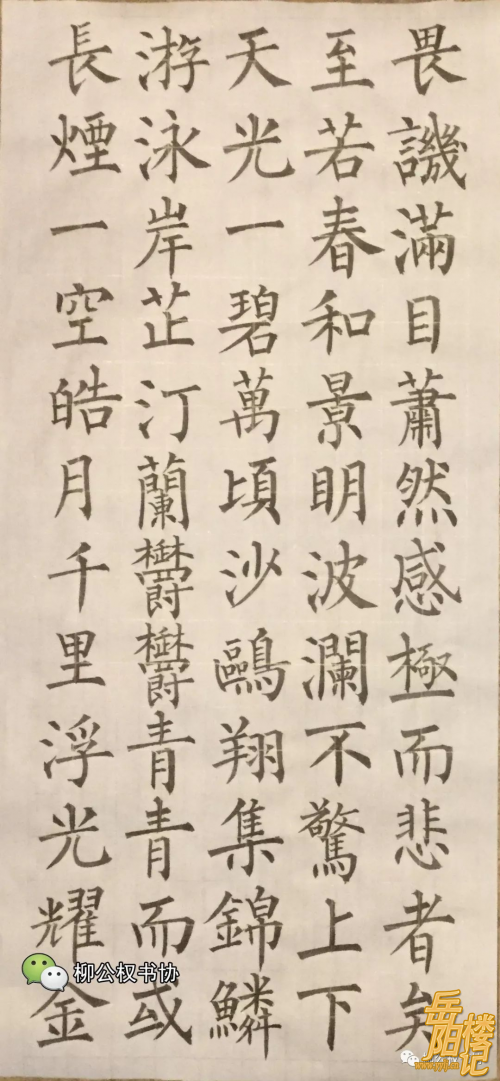 畏譏滿目蕭然感極而悲者矣
至若春和景明波瀾不驚上下
天光一碧萬頃沙鷗翔集錦鱗
游泳岸芷汀蘭欝欝青青而或
長煙一空皓月千里浮光耀金
柳公权书协
岳阳楼记